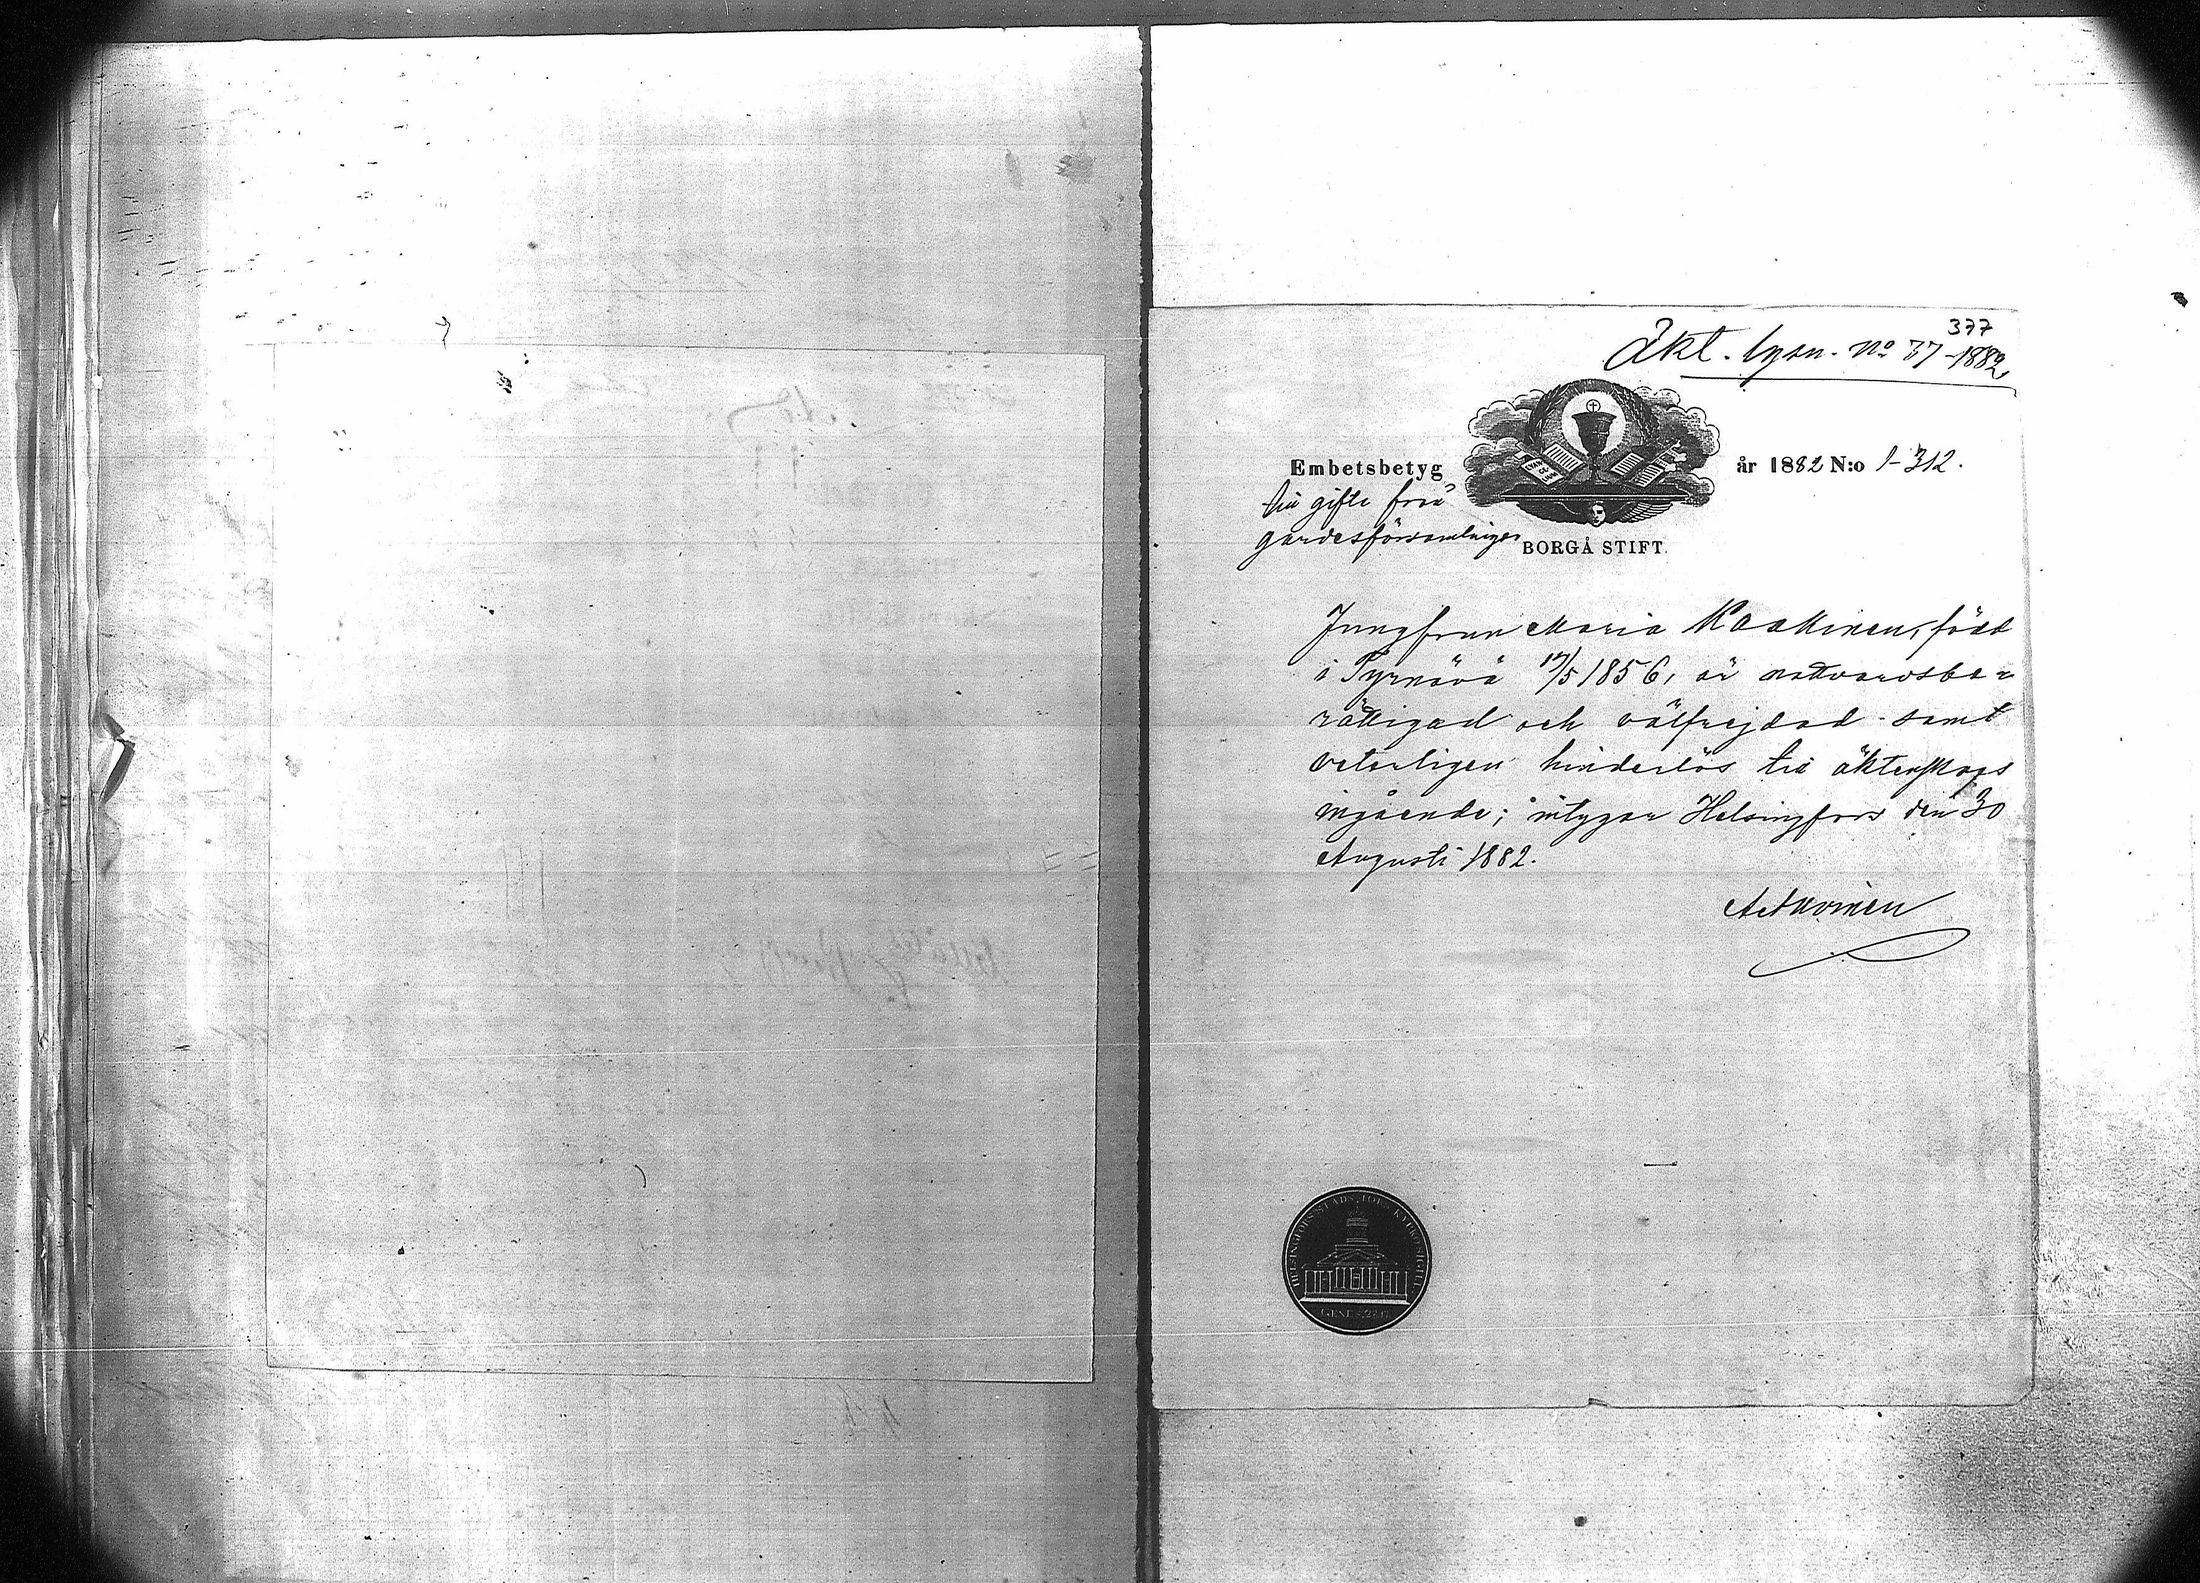 377
Äkt. lysn. No 37-1882
Embetsbetyg
år 1882 N:o 1-312.
till gifte från
gardesförsamlingen
BORGÅ STIFT.
Jungfrun Maria Kaakinen, född
i Tyrnävä 17/5 1856, är nattvardsbe-
rättigad och välfrejdad samt
veterligen hinderlös till äktenskaps
ingående; intygar Helsingfors den 30
Augusti 1882.
HELSINGFORS STADS FÖRS. KYRKOSIGILL